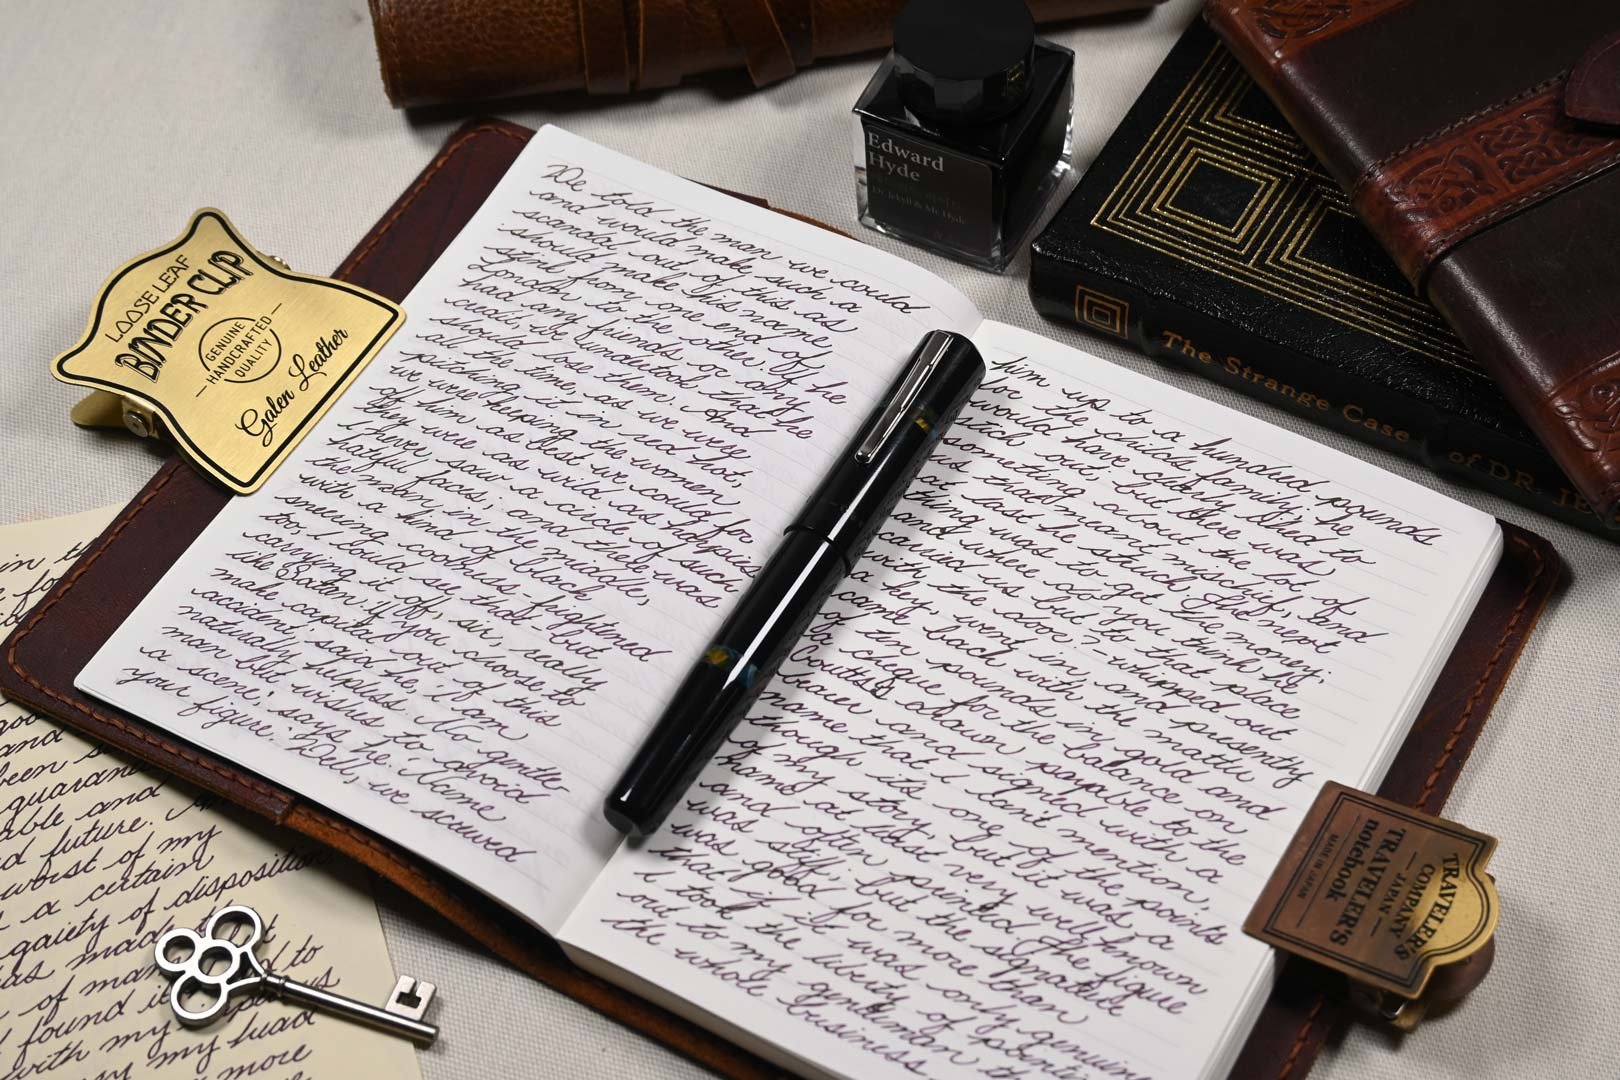 We told the man we could
and would make such a
scandal out of this as
should make his name
stink from one end of
London to the other. If he
had any friends or any
credit, we undertook that he
should lose them. And
all the time, as we were
pitching it in red hot,
we were keeping the women
off him as best we could for
they were as wild as harpies.
I never saw a circle of such
hateful faces; and there was
the man in the middle,
with a kind of black
sneering coolness-frightened
too, I could see that-but
carrying it off, sir, really
like Satan. 'If you choose to
make capital out of this
accident,' said he, 'I am
naturally helpless. No gentle
man but wishes to avoid
a scene,' says he. 'Name
your figure.' Well, we screwed
him up to a hundred pounds
for the child's family; he
would have clearly liked to
stick out, but there was
something about the lot of
us that meant mischief, and
at last he struck. The next
thing was to get the money;
and where do you think he
carried us but to that place
with the door?-whipped out
a key, went in, and presently
came back with the matter
of ten pounds in gold and
a cheque for the balance on
Coutts's, drawn payable to the
bearer and signed with a
name that I can't mention,
though it's one of the points
of my story, but it was a
name at least very well known
and often printed. The figure
was stiff; but the signature
was good for more than
that, if it was only genuine.
I took the liberty of pointing
out to my gentleman th
the whole business
LOOSE LEAF
BINDER CLIP
GENUINE
HANDCRAFTED
QUALITY
Galen Leather
Edward
Hyde
Dr. Jekyll & Mr. Hyde
The Strange Case of DR. JE
TRAVELER'S
COMPANY
JAPAN
TRAVELER'S
notebook
MADE IN JAPAN
in th
good
and
been s
guaran
able and
d future.
worst of my
a certain
gaiety of disposition,
as made
of man to
found it
with my
my head
more